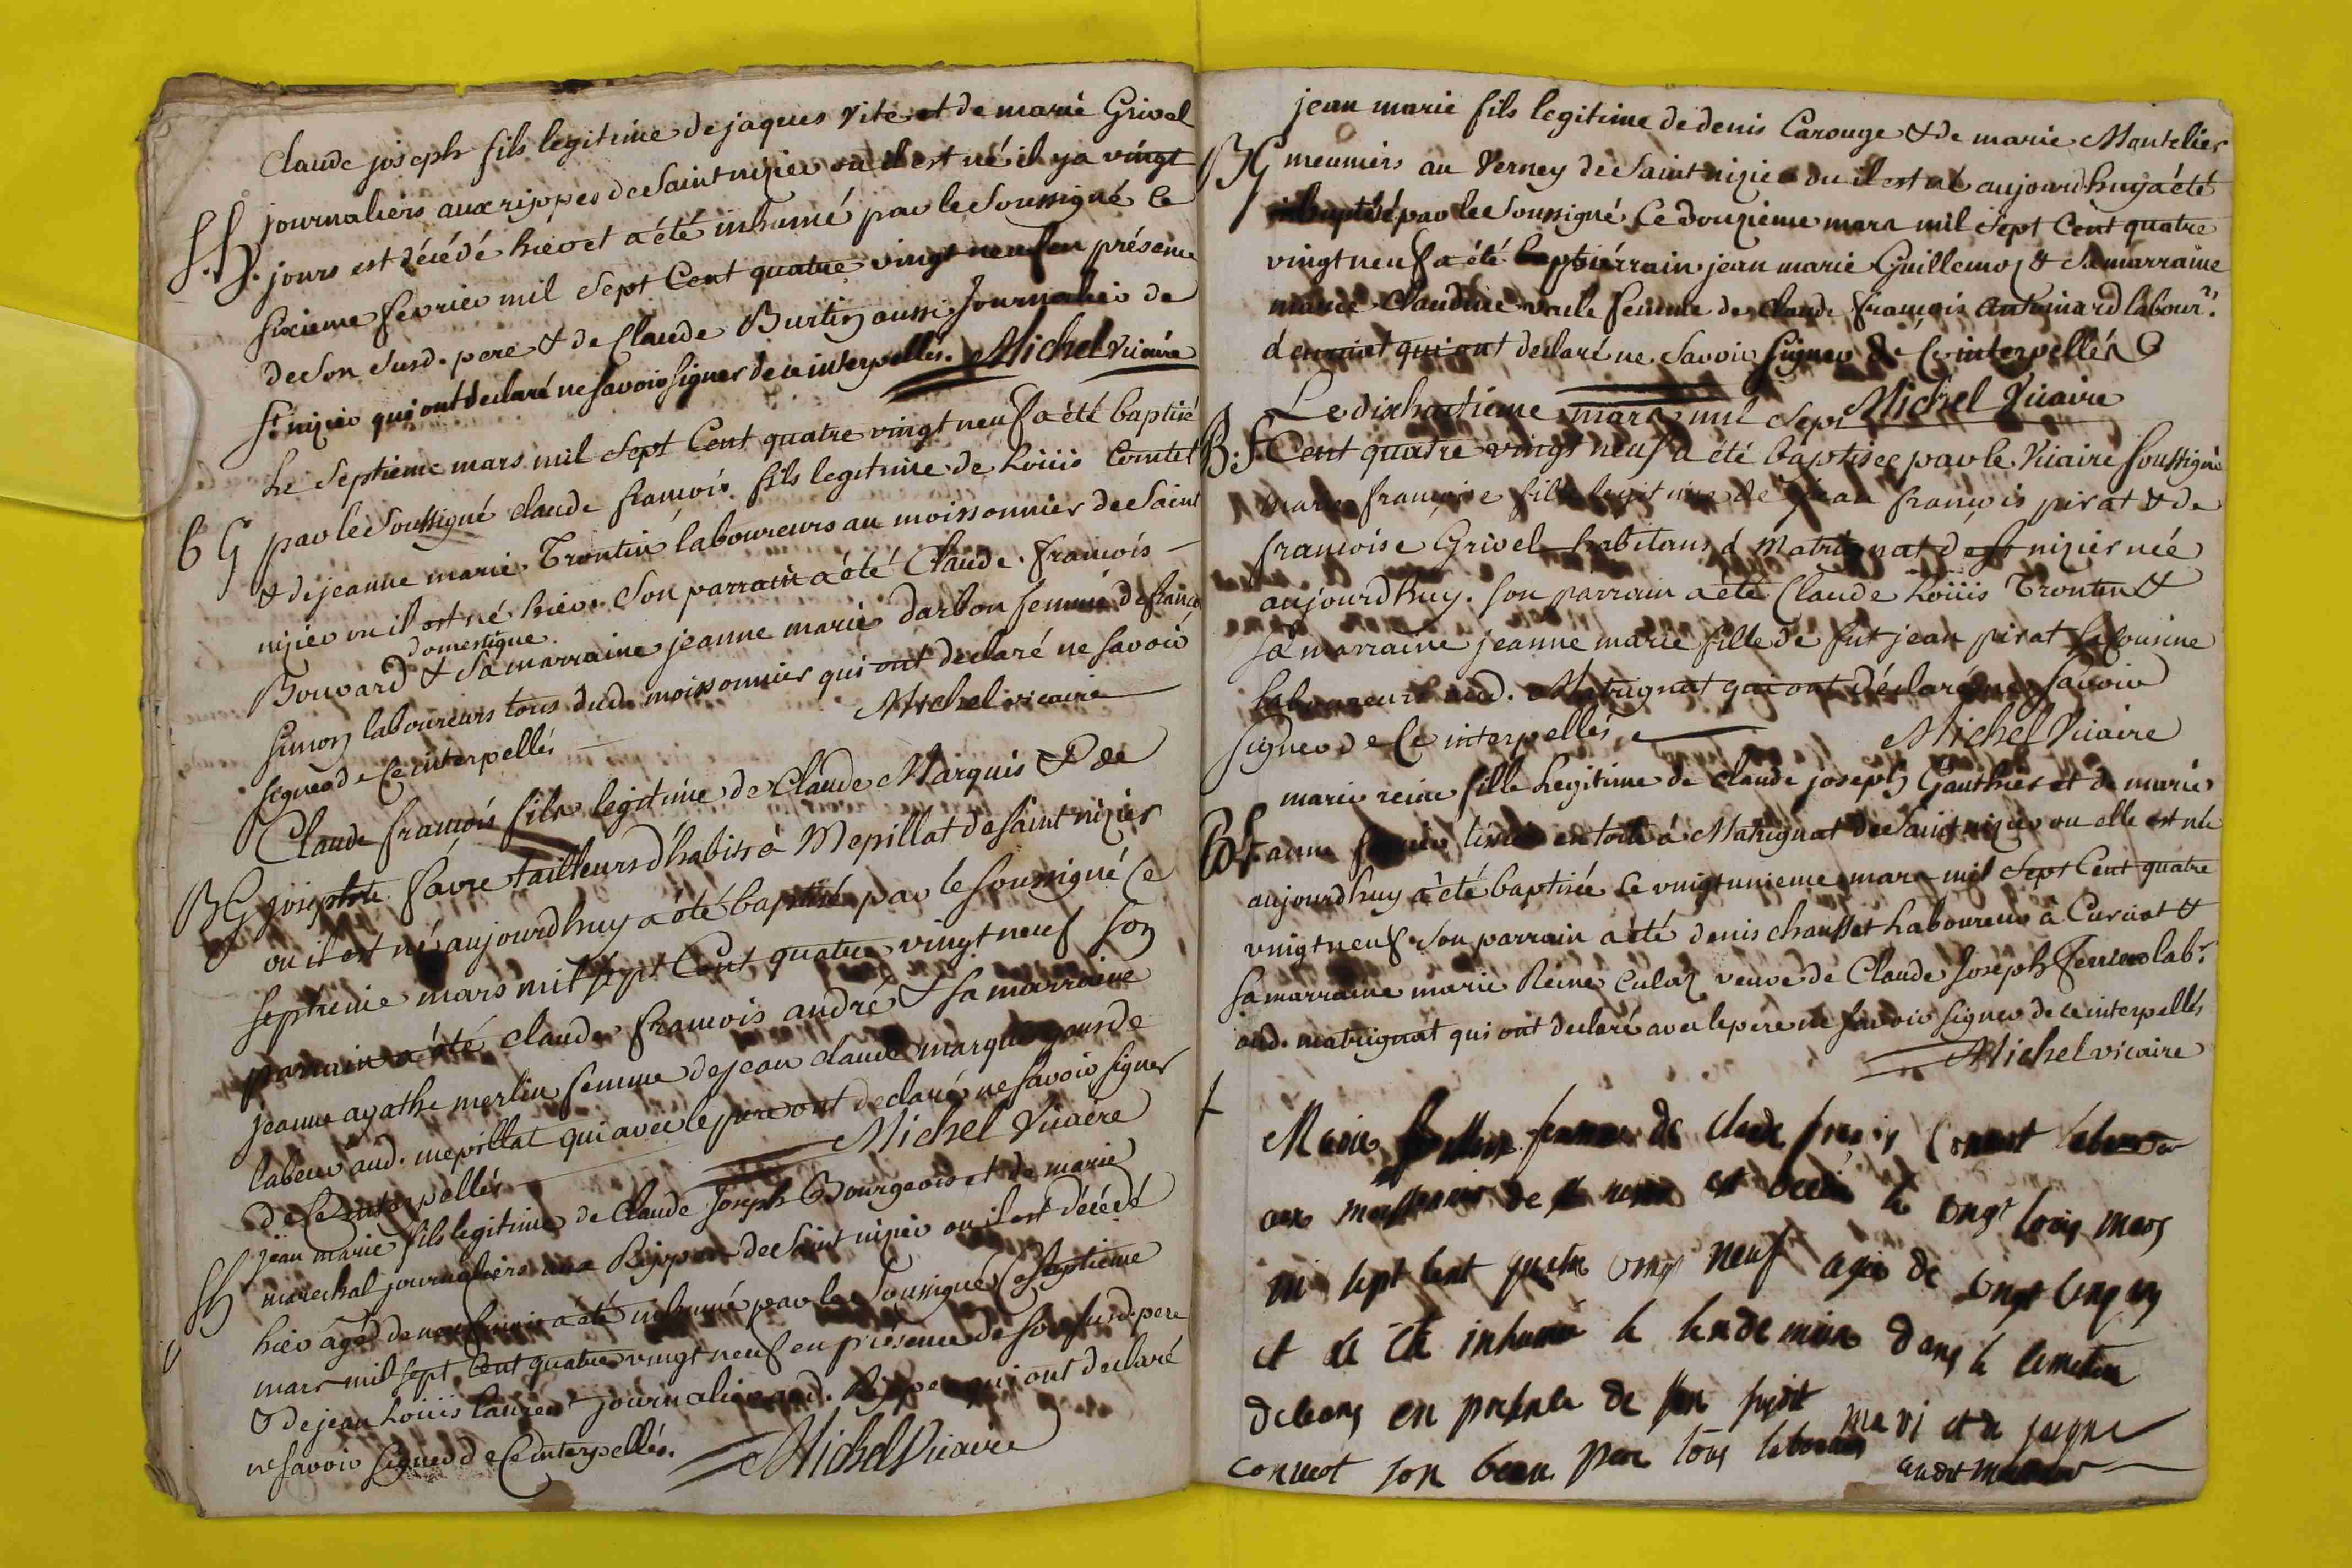 Claude joseph fils legitime de jaques vite et de marie Grivel
journaliers aux rippes de Saint nizier ou il est né il ya vingt
S.G. jours est décédé hier et a été inhumé par le Soussigné ce
sixieme fevrier mil sept Cent quatre vingt neuf en présence
de Son Susd. pere & de Claude Burtin aussi Journalier de
St nizier qui ont declaré ne Savoir Signer de ce interpellés. Michel Vicaire
Le Septieme mars mil Sept Cent quatre vingt neuf a été baptisé
BG par le Soussigné claude francois fils legitime de Loüis Comtet
& de jeanne marie Trontin laboureurs au moissonnier de Saint
nizier ou il est né hier. Son parrain a été Claude francois
domestique
Bouvard & Sa marraine jeanne marie darbon femme de francois
Simon laboureurs tous dud. moissonnier qui ont declaré ne Savoir
Signer de Ce interpellés Michel vicaire
Claude francois fils legitime de Claude Marquis & de
BG josephte favre tailleurs d'habits à Mepillat de Saint nizier
ou il est né aujourdhuy a été baptisé par le Soussigné Ce
septieme mars mil sept Cent quatre vingt neuf Son
parrain a été claude francois andré & Sa marraine
jeanne agathe merlin femme de jean claude marquis
labeur aud. mepillat qui avec le pere ont declaré ne Savoir Signer
de Ce interpellés Michel Vicaire
jean marie fils legitime de Claude Joseph Bourgeois et de marie
SG marechal journaliers aux Rippes de Saint nizier ou il est décédé
hier âgé de a été inhumé par le Soussigné Ce Septieme
mars mil sept Cent quatre vingt neuf en présence de Son Susd. pere
& de jean Loüis Laurent journalier aud. Rippes qui ont declaré
ne Savoir Signer de Ce interpellés. Michel Vicaire
jean marie fils legitime de denis Carouge & de marie Montelier
BG meuniers au Verney de Saint nizier ou il est né aujourdhuy a été
baptisé par le Soussigné Ce douzieme mars mil Sept Cent quatre
vingt neuf a été parrain jean marie Guillemoz & Sa marraine
marie Claudine femme de claude francois antoinard labour.
qui ont declaré ne Savoir Signer de Ce interpellés
Le dixhuitieme mars mil Sept Michel Vicaire
B.f. Cent quatre vingt neuf a été baptisee par le Vicaire Soussigné
marie francoise fille legitime de jean francois pirat & de
francoise Grivel habitans a Matrignat de St nizier née
aujourdhuy. Son parrain a été Claude Loüis Trontin &
Sa marraine jeanne marie fille de fut jean pirat Sa Cousine
laboureurs aud. Matrignat qui ont déclaré ne Savoir
Signer de Ce interpellés Michel Vicaire
marie reine fille Legitime de claude joseph Gauthier et de marie
Bf en toile à Matrignat de Saint nizier ou elle est née
aujourdhuy a été baptisée Ce vingtunieme mars mil Sept Cent quatre
vingt neuf. Son parrain a été denis chausset Laboureur à Curciat &
Sa marraine marie Reine Culaz veuve de Claude Joseph ferrier lab.r
aud. matrignat qui ont declaré avec le pere ne Savoir Signer de ce interpellés
Michel vicaire
Marie femme de claude francois Convert laboureur
aux de est decedée le vingt trois mars
mil sept cent quatre vingt neuf agée de vingt cinq ans
et a été inhumée le lendemain dans le cimetière
en presence de son susdit mari et de
convert son beau pere tous laboureurs audit